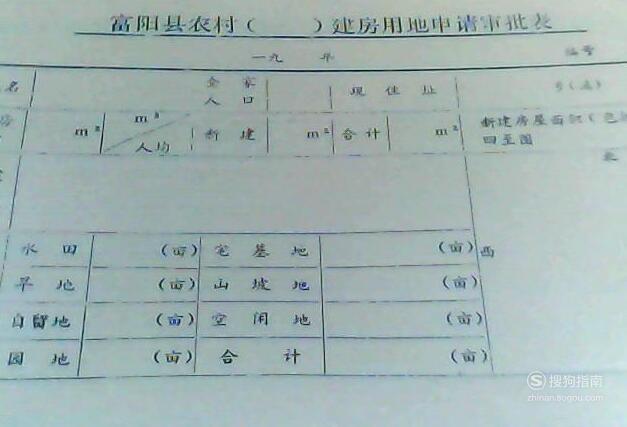 富阳县农村(　　)建房用地申请审批表
一九　年　编号
名　全家人口　现住址　乡(镇)
房　m²　m²/人均　新建　m²　合计　m²　新建房屋面积(包括
四至图
水田　(亩)　宅基地　(亩)　西
旱地　(亩)　山坡地　(亩)
自留地　(亩)　空闲地　(亩)
园地　(亩)　合计　(亩)
搜狗指南
zhinan.sogou.com